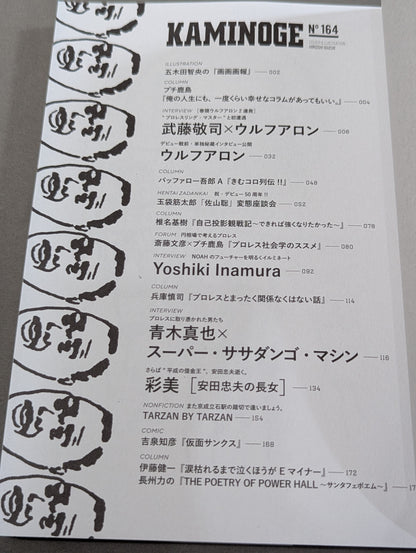 KAMINOGE Nº 164
ILLUSTRATION
五木田智央の『画画画報』 002
COLUMN
プチ鹿島
『俺の人生にも、一度くらい幸せなコラムがあってもいい。』 004
INTERVIEW [巻頭ウルフアロン2連発]
"プロレスリング・マスター"と初遭遇
武藤敬司×ウルフアロン 006
デビュー戦前・単独秘蔵インタビュー公開
ウルフアロン 032
COLUMN
バッファロー吾郎A『きむコロ列伝!!』 048
HENTAI ZADANKAI 祝・デビュー50周年!!
玉袋筋太郎「佐山聡」変態座談会 052
COLUMN
椎名基樹『自己投影観戦記〜できれば強くなりたかった〜』 078
FORUM 円相場で考えるプロレス
斎藤文彦×プチ鹿島『プロレス社会学のススメ』 080
INTERVIEW NOAHのフューチャーを明るくイルミネート
Yoshiki Inamura 092
COLUMN
兵庫慎司『プロレスとまったく関係なくはない話』 114
INTERVIEW
プロレスに取り憑かれた男たち
青木真也×
スーパー・ササダンゴ・マシン 116
さらば"平成の借金王"、安田忠夫逝く。
彩美[安田忠夫の長女] 134
NONFICTION また京成立石駅の踏切で逢いましょう。
TARZAN BY TARZAN 154
COMIC
古泉知彦『仮面サンクス』 168
COLUMN
伊藤健一『涙枯れるまで泣くほうがEマイナー』 172
長州力の『THE POETRY OF POWER HALL 〜サンタフェポエム〜』